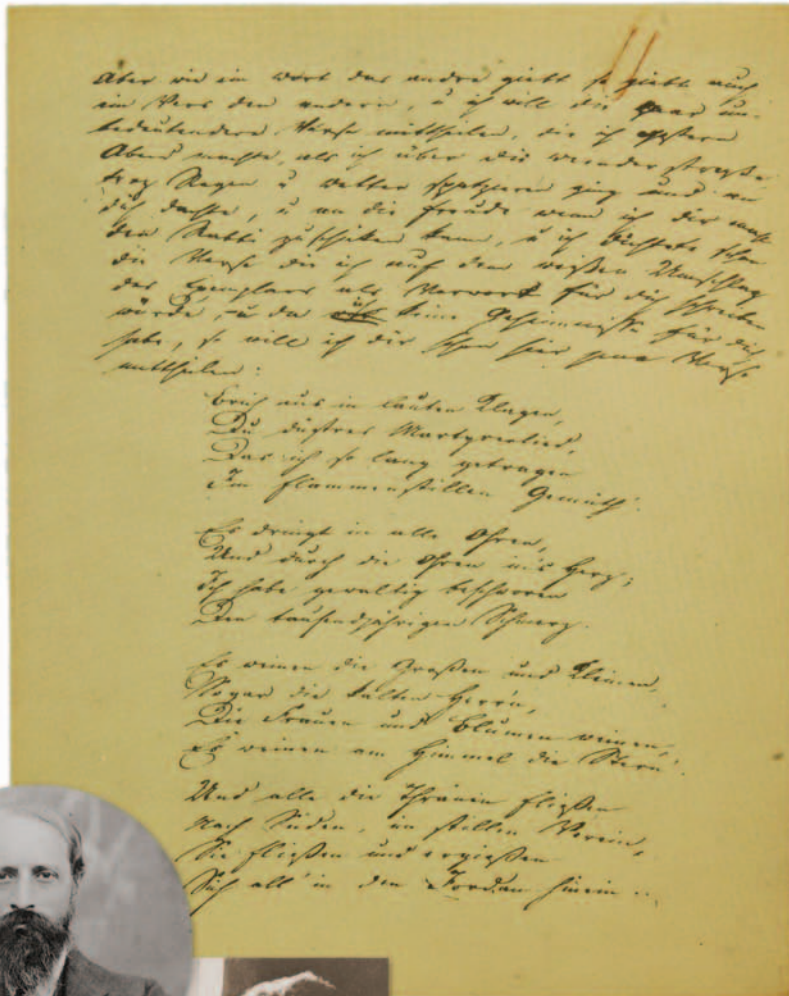 Aber wie ein Wort das andre giebt so giebt auch
ein Vers den andern, u ich will die paar un-
bedeutendere Verse mittheilen, die ich gestern
Abend machte, als ich über die weender straße
troz Regen u Wetter spatzieren ging und an
dich dachte, u an die Freude wenn ich dir mahl
den Rabbi zuschicken kann, u ich dichtete schon
die Verse die ich auf den weißen Umschlag
des Exemplars als Vorwort für dich schreiben
würde, u da ich keine Geheimnisse für dich
habe, so will ich dir schon hier jene Verse
mittheilen:
Brich aus in lauten Klagen,
Du düstres Martyrerlied,
Das ich so lang getragen
Im flammenstillen Gemüth.
Es dringt in alle Ohren,
Und durch die Ohren ins Herz;
Ich habe gewaltig beschworen
Den tausendjährigen Schmerz.
Es weinen die Großen und Kleinen,
Sogar die kalten Herrn,
Die Frauen und Blumen weinen,
Es weinen am Himmel die Stern.
Und alle die Thränen fließen
Nach Süden, im stillen Verein,
Sie fließen und ergießen
Sich all' in den Jordan hinein ..